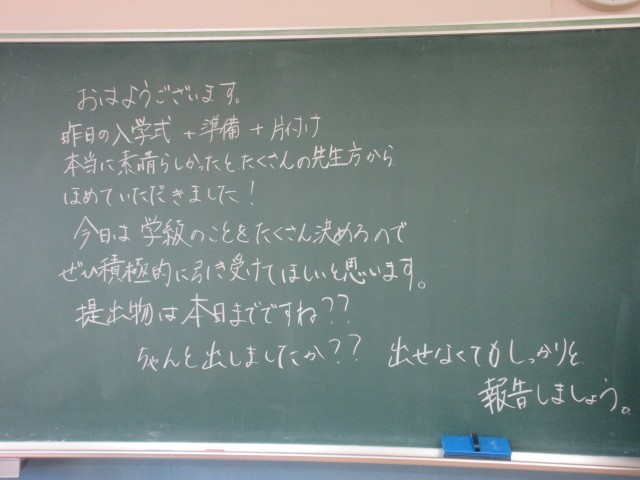 おはようございます。
昨日の入学式+準備+片付け
本当に素晴らしかったとたくさんの先生方から
ほめていただきました!
今日は学級のことをたくさん決めるので
ぜひ積極的に引き受けてほしいと思います。
提出物は本日までですね??
ちゃんと出しましたか?? 出せなくてもしっかりと
報告しましょう。